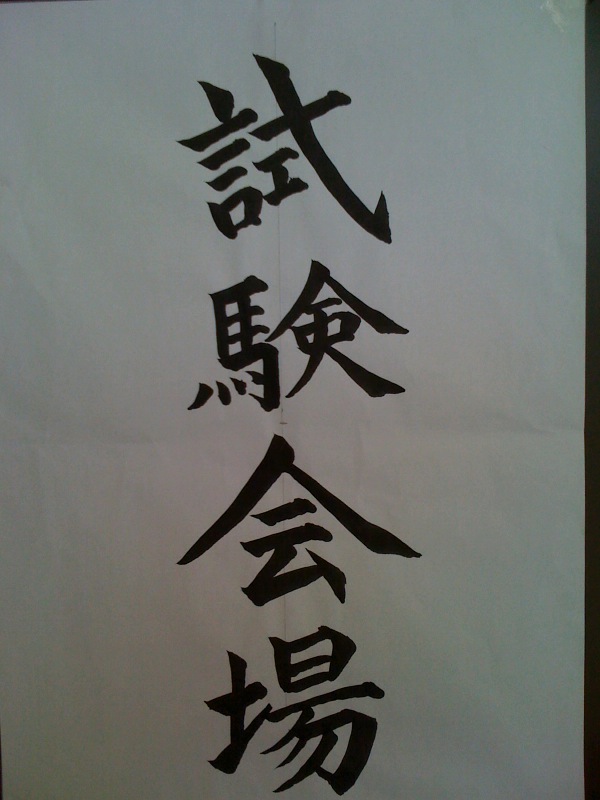 試験会場